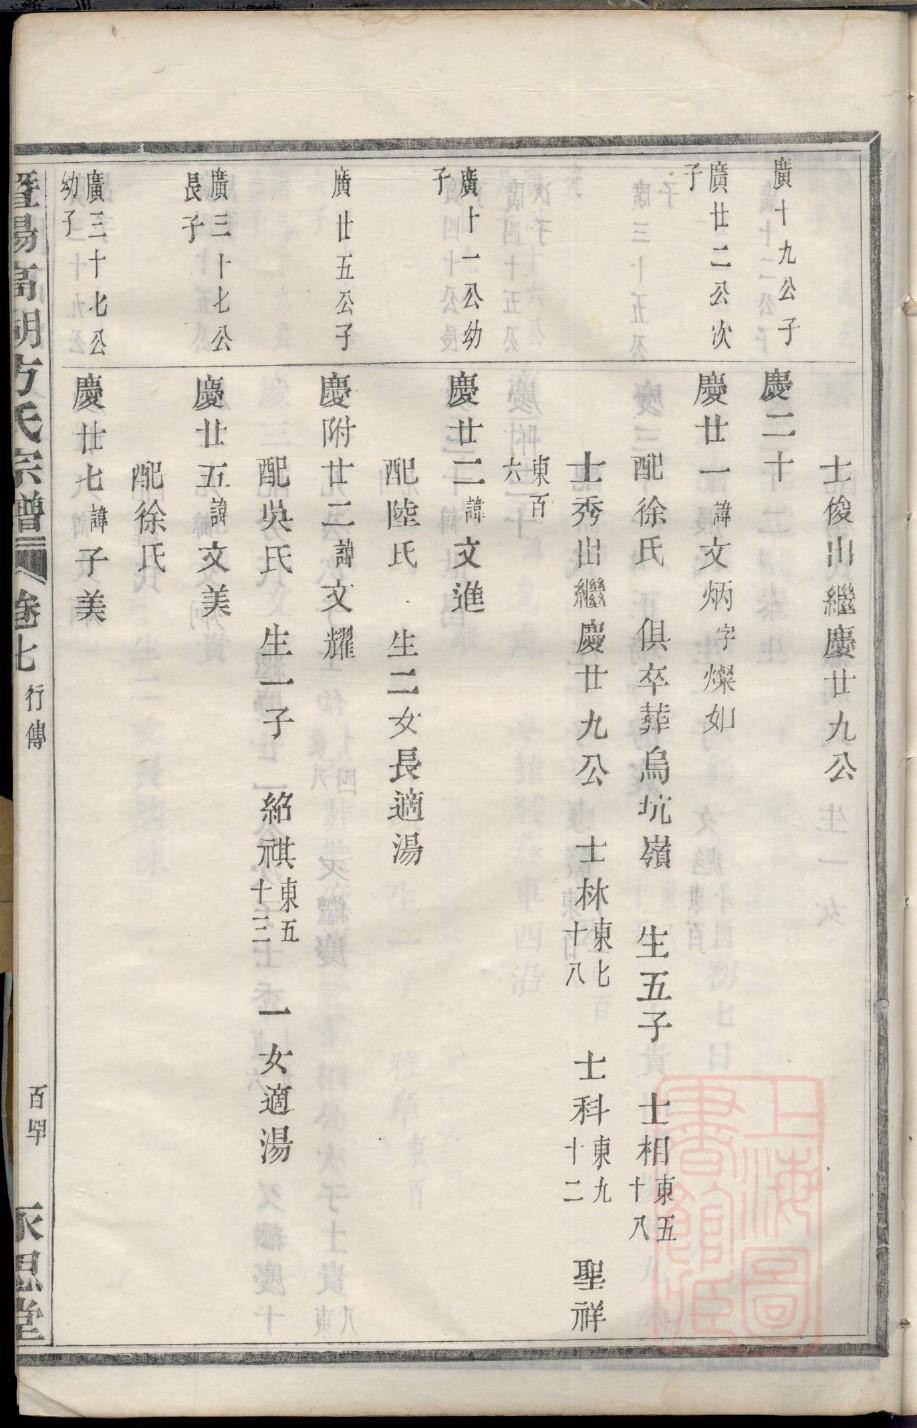 士俊出繼慶廿九公
廣十九公子
慶二十
廣廿二公次子
慶廿一諱文炳字燦如
配徐氏 俱卒葬烏坑嶺 生五子 士相東五十八
士秀出繼慶廿九公 士林東七十八 士科東九十二 聖祥
東百六
廣十一公幼子
慶廿二諱文進
配陸氏 生二女長適湯
廣廿五公子
慶附廿二諱文耀
配吳氏 生一子 紹祺東五十三 一女適湯
廣三十七公長子
慶廿五諱文美
配徐氏
廣三十七公幼子
慶廿七諱子美
暨陽高湖方氏宗譜 卷七 行傳 永思堂
上海圖書館藏